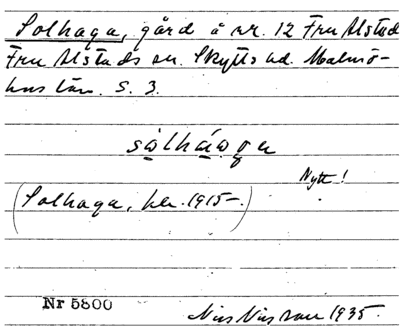 Solhaga, gård å nr. 12 Fru Alstad
Fru Alstads sn. Skytts hd. Malmö-
hus län. S. 3.
Nytt!
(Solhaga, ber. 1915-.)
Nr 5800
Nils Nilsson 1935.